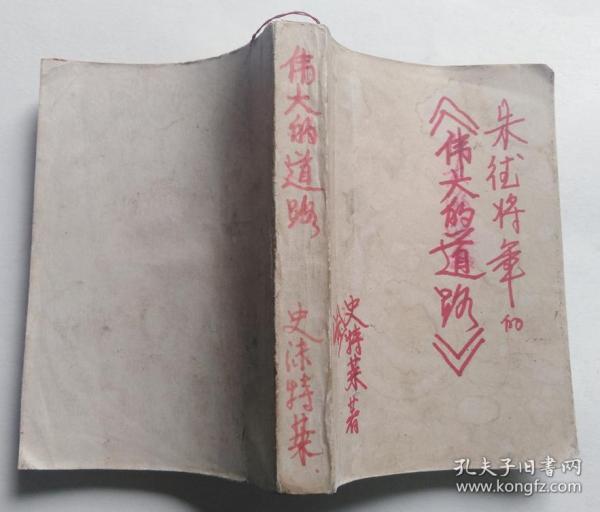 朱德将军的
《伟大的道路》
史沫特莱著
伟大的道路
史沫特莱
孔夫子旧书网
www.kongfz.com